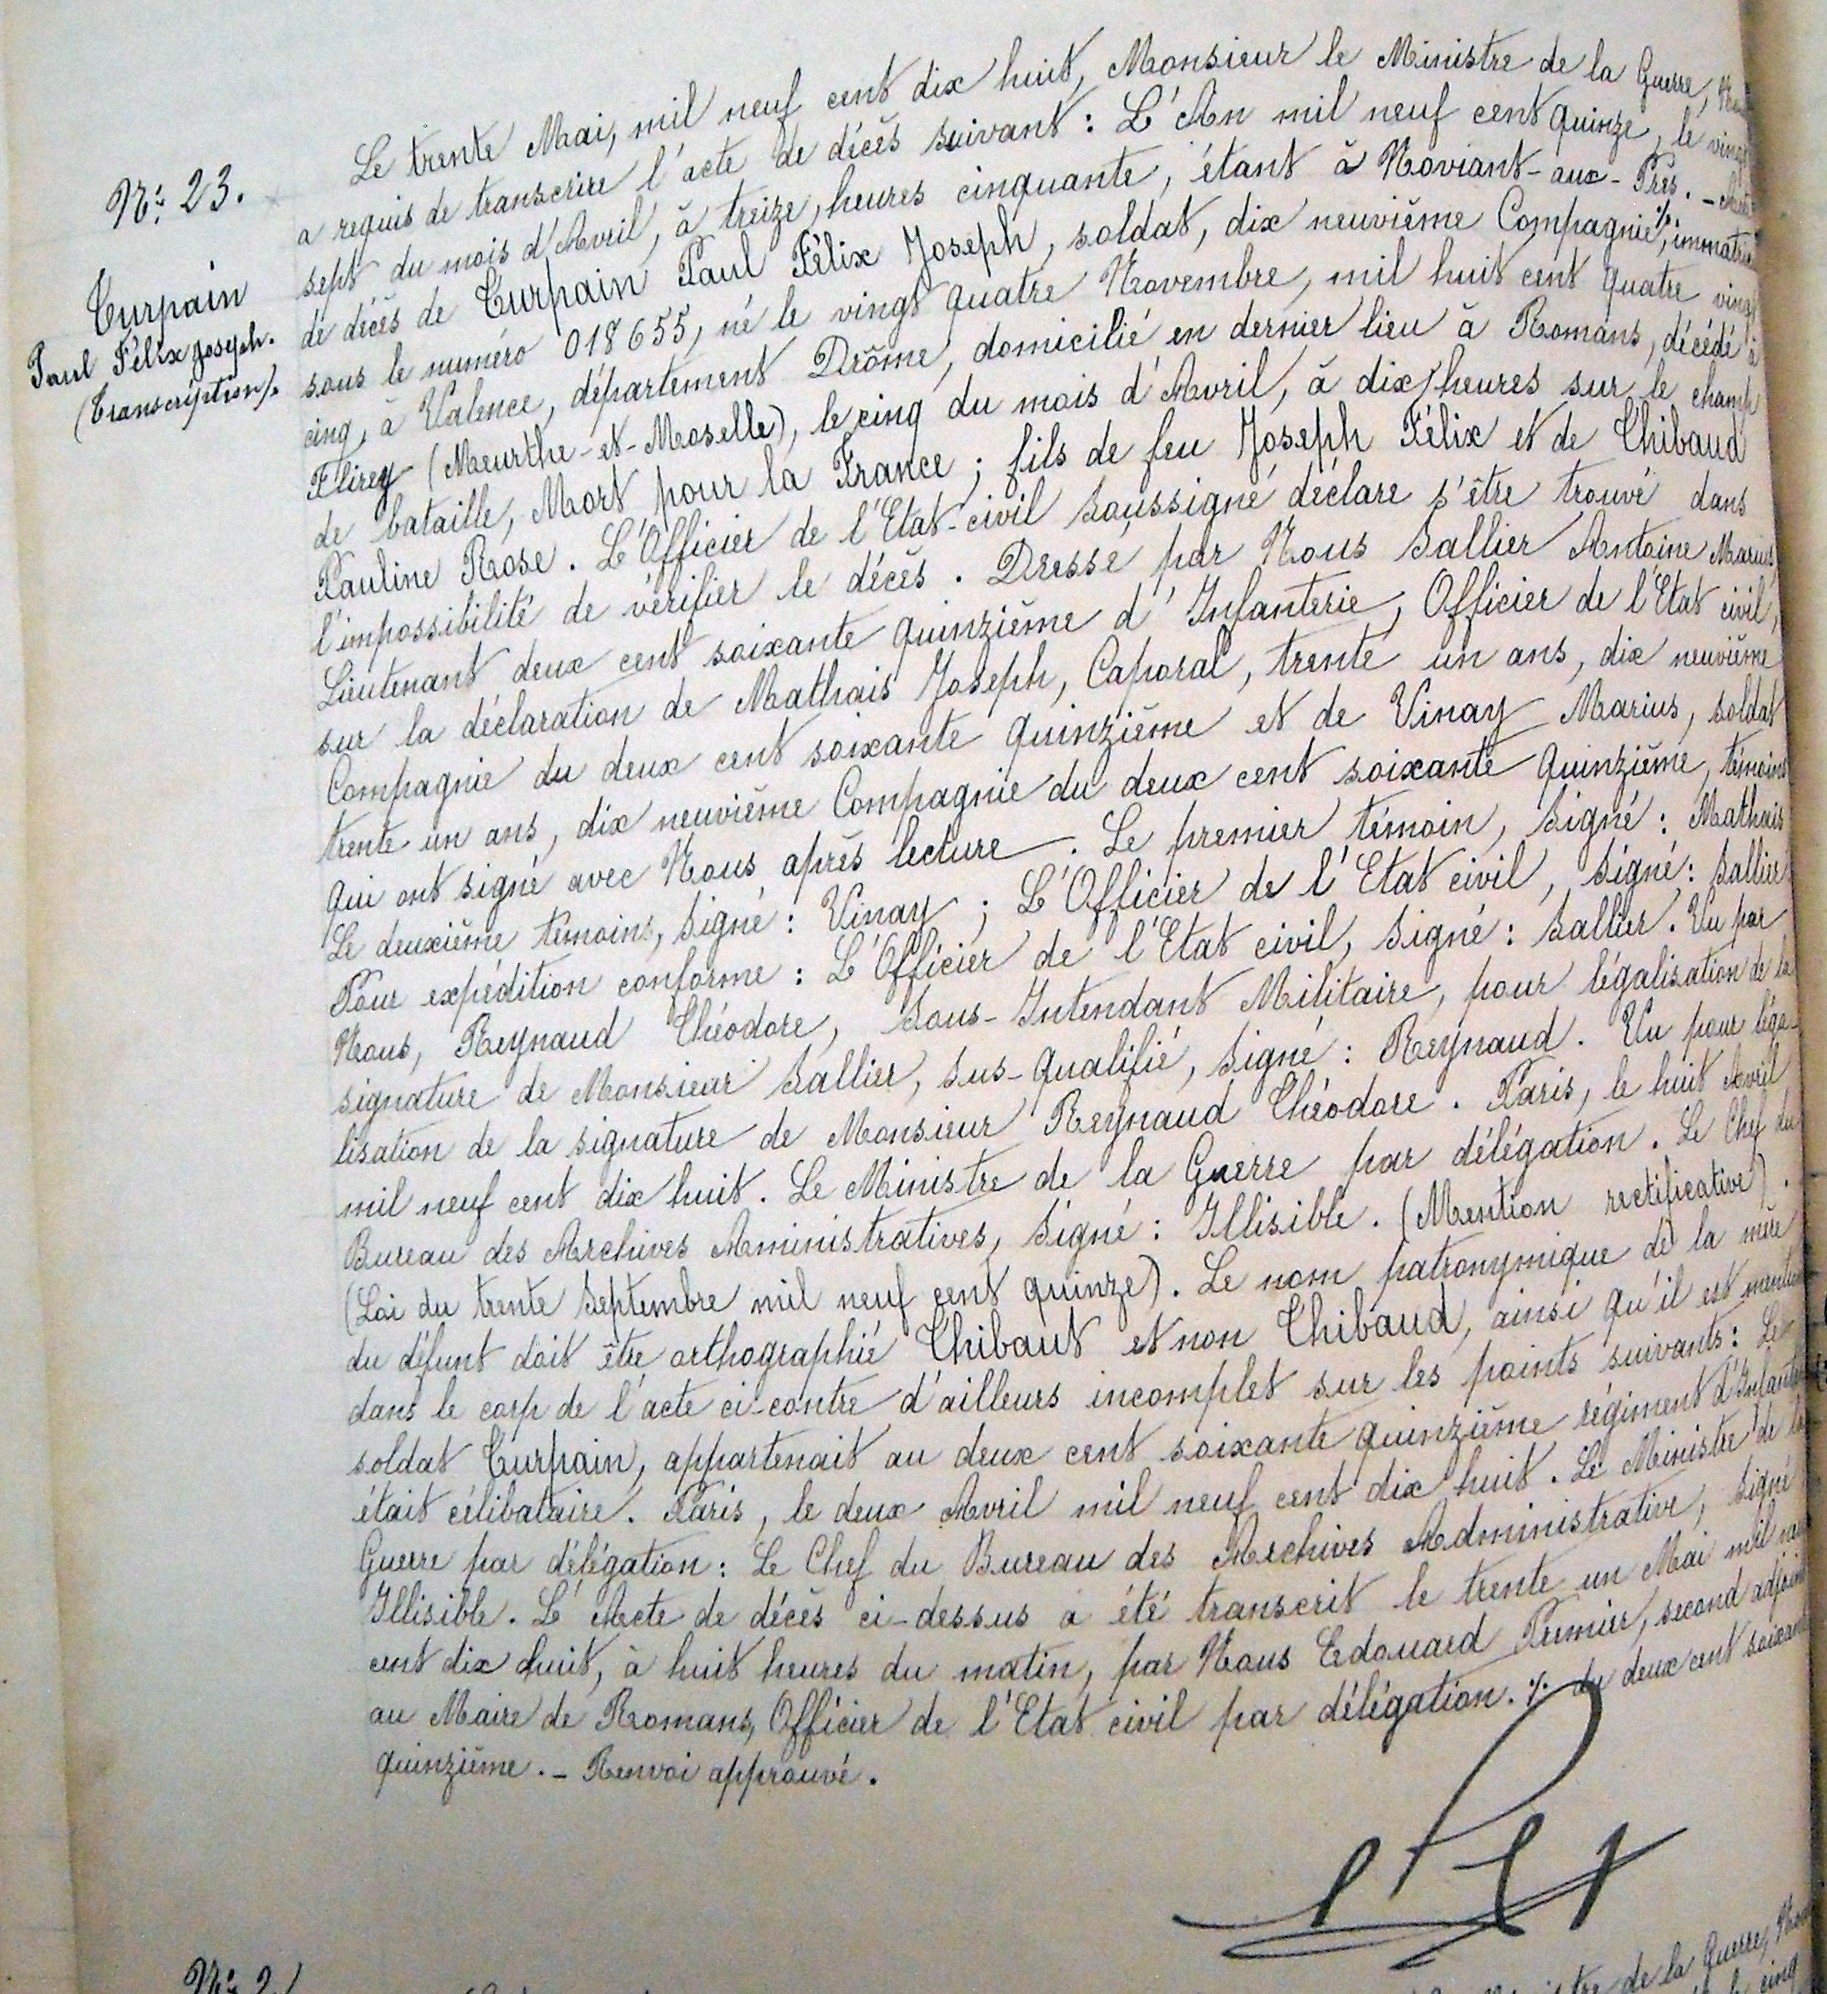 N° 23.
Turpain
Paul Félix Joseph.
(Transcription).
Le trente Mai, mil neuf cent dix huit, Monsieur le Ministre de la Guerre,
a requis de transcrire l'acte de décès suivant : L'An mil neuf cent quinze, le vingt
sept du mois d'Avril, à treize heures cinquante, étant à Noviant-aux-Prés. - Acte
de décès de Turpain Paul Félix Joseph, soldat, dix neuvième Compagnie ·/·, immatriculé
sous le numéro 018655, né le vingt quatre Novembre, mil huit cent quatre vingt
cinq, à Valence, département Drôme, domicilié en dernier lieu à Romans, décédé à
Flirey (Meurthe-et-Moselle), le cinq du mois d'Avril, à dix heures sur le champ
de bataille, Mort pour la France ; fils de feu Joseph Félix et de Thibaud
Pauline Rose. L'Officier de l'Etat-civil soussigné déclare s'être trouvé dans
l'impossibilité de vérifier le décès. Dressé par Nous Sallier Antoine Marius,
Lieutenant deux cent soixante quinzième d'Infanterie, Officier de l'Etat civil,
sur la déclaration de Mathais Joseph, Caporal, trente un ans, dix neuvième
Compagnie du deux cent soixante quinzième et de Vinay Marius, soldat
trente un ans, dix neuvième Compagnie du deux cent soixante quinzième, témoins
qui ont signé avec Nous après lecture. Le premier témoin, Signé : Mathais
Le deuxième témoins, Signé : Vinay ; L'Officier de l'Etat civil, Signé : Sallier
Pour expédition conforme : L'Officier de l'Etat civil, Signé : Sallier. Vu par
Nous, Reynaud Théodore, Sous-Intendant Militaire, pour légalisation de la
signature de Monsieur Sallier, sus-qualifié, Signé : Reynaud. Vu pour léga-
lisation de la signature de Monsieur Reynaud Théodore. Paris, le huit Avril
mil neuf cent dix huit. Le Ministre de la Guerre par délégation. Le Chef du
Bureau des Archives Aministratives, Signé : Illisible. (Mention rectificative).
(Loi du trente Septembre mil neuf cent quinze). Le nom patronymique de la mère
du défunt doit être orthographié Thibaut et non Thibaud, ainsi qu'il est
dans le corp de l'acte ci-contre d'ailleurs incomplet sur les points suivants : Le
soldat Turpain, appartenait au deux cent soixante quinzième régiment d'Infanterie
était célibataire. Paris, le deux Avril mil neuf cent dix huit. Le Ministre de la
Guerre par délégation : Le Chef du Bureau des Archives Administrative, Signé
Illisible. L'Acte de décès ci-dessus a été transcrit le trente un Mai mil neuf
cent dix huit, à huit heures du matin, par Nous Edouard Premier, second adjoint
au Maire de Romans, Officier de l'Etat civil par délégation. ·/· du deux cent soixante
quinzième. - Renvoi approuvé.
de la Guerre,
cinq